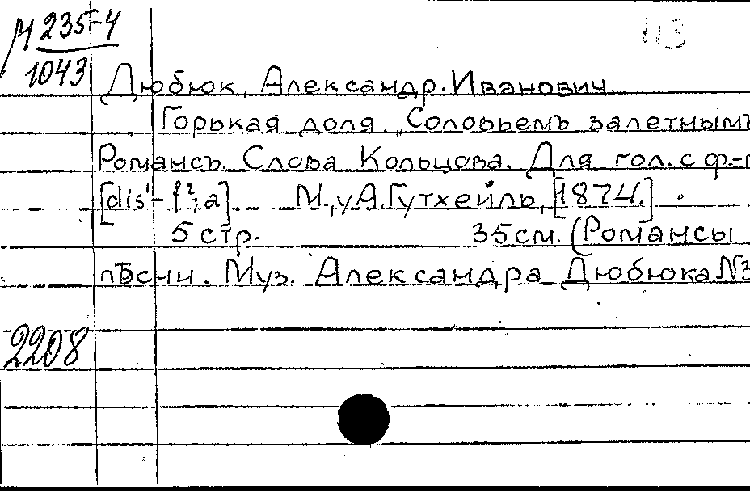 М 235-4
1043
113
Дюбюк, Александр Иванович
Горькая доля. "Соловьемъ залетнымъ
Романсъ. Слова Кольцова. Для гол. с ф-п
[dis¹-f²,a]. М., у А. Гутхейль, [1874.]
5 стр. 35 см. (Романсы
пѣсни. Муз. Александра Дюбюка №
2208